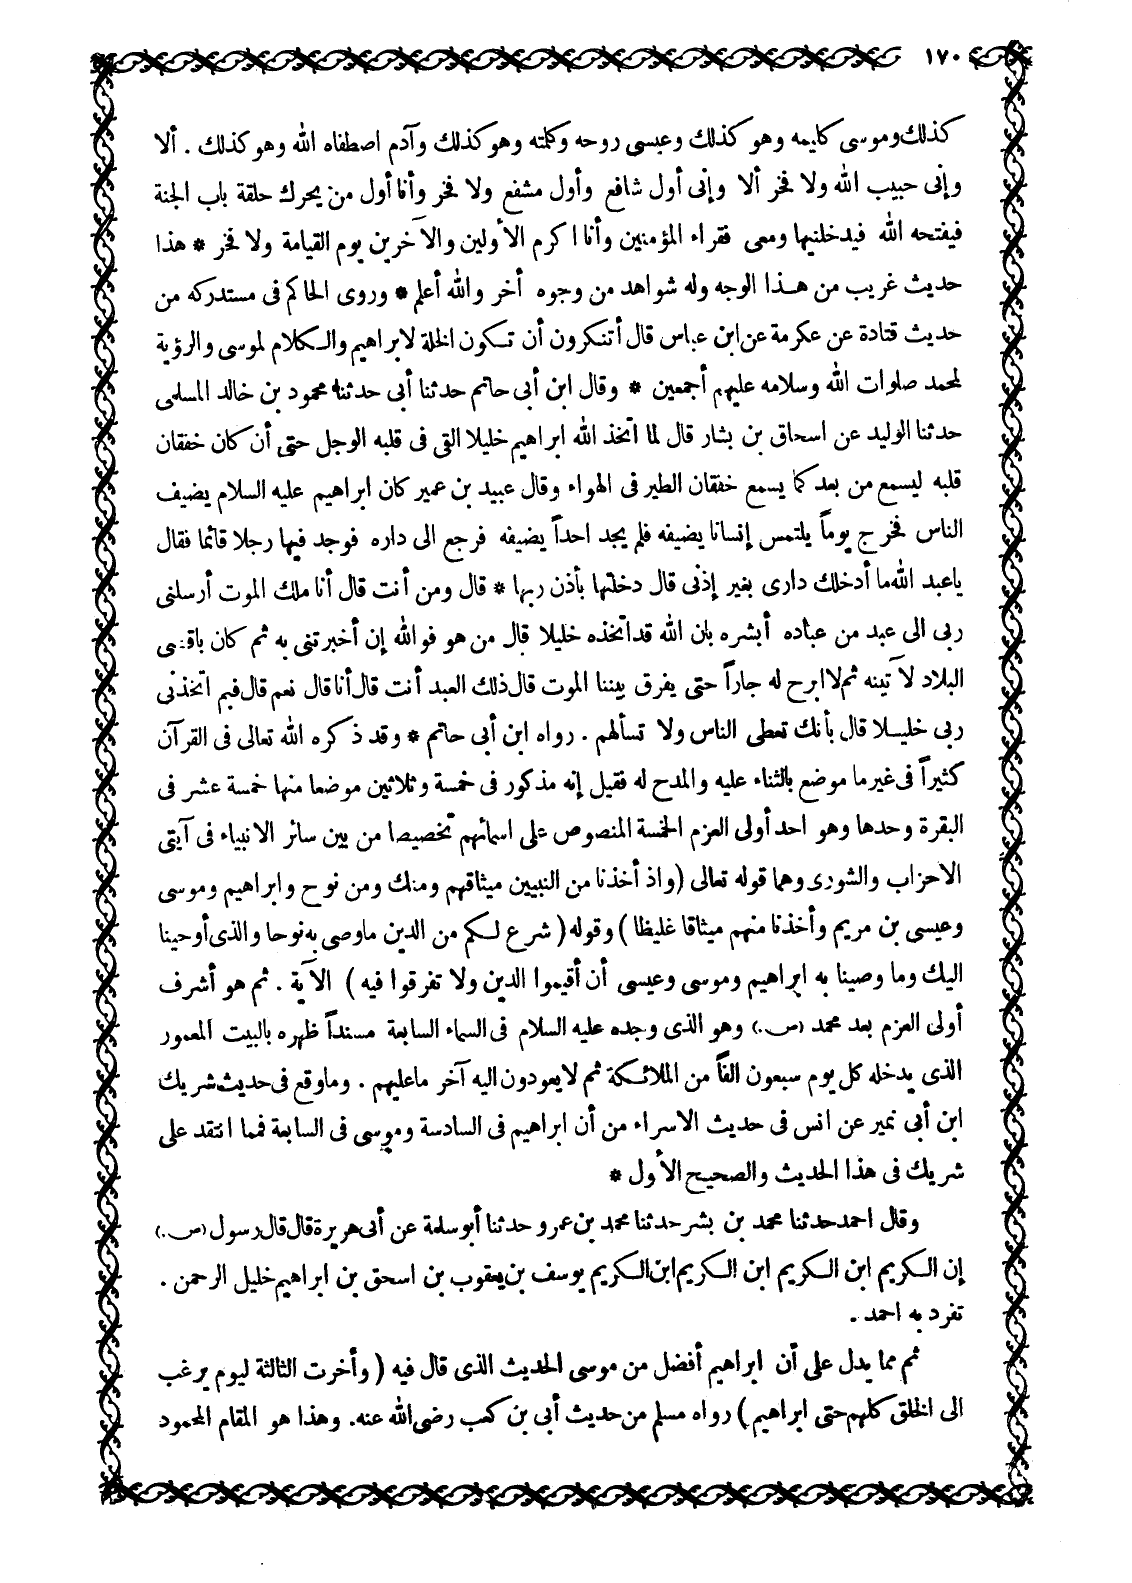 ١٧٠
كذلك وموسى كليمه وهو كذلك وعيسى روحه وكلمته وهو كذلك وآدم اصطفاه الله وهو كذلك . ألا
وإنى حبيب الله ولا فخر ألا وإنى أول شافع وأول مشفع ولا فخر وأنا أول من يحرك حلقة باب الجنة
فيفتحه الله فيدخلنيها ومعى فقراء المؤمنين وأنا اكرم الأولين والآخرين يوم القيامة ولا فخر * هذا
حديث غريب من هذا الوجه وله شواهد من وجوه أخر والله أعلم * وروى الحاكم فى مستدركه من
حديث قتادة عن عكرمة عن ابن عباس قال أتنكرون أن تكون الخلة لابراهيم والكلام لموسى والرؤية
لمحمد صلوات الله وسلامه عليهم أجمعين * وقال ابن أبى حاتم حدثنا أبى حدثنا محمود بن خالد المسلمى
حدثنا الوليد عن اسحاق بن بشار قال لما اتخذ الله ابراهيم خليلا القى فى قلبه الوجل حتى أن كان خفقان
قلبه ليسمع من بعد كما يسمع خفقان الطير فى الهواء وقال عبيد بن عمير كان ابراهيم عليه السلام يضيف
الناس فخرج يوماً يلتمس إنسانا يضيفه فلم يجد احداً يضيفه فرجع الى داره فوجد فيها رجلا قائما فقال
ياعبد الله ما أدخلك دارى بغير إذنى قال دخلتها بأذن ربها * قال ومن أنت قال أنا ملك الموت أرسلنى
ربى الى عبد من عباده أبشره بان الله قد اتخذه خليلا قال من هو فوالله إن أخبرتنى به ثم كان باقصى
البلاد لآتينه ثم لا ابرح له جاراً حتى يفرق بيننا الموت قال ذلك العبد أنت قال أنا قال نعم قال فبم اتخذنى
ربى خليلا قال بأنك تعطى الناس ولا تسألهم . رواه ابن أبى حاتم * وقد ذكره الله تعالى فى القرآن
كثيراً فى غير ما موضع بالثناء عليه والمدح له فقيل إنه مذكور فى خمسة وثلاثين موضعا منها خمسة عشر فى
البقرة وحدها وهو احد أولى العزم الخمسة المنصوص على اسمائهم تخصيصا من بين سائر الانبياء فى آيتى
الاحزاب والشورى وهما قوله تعالى (واذ أخذنا من النبيين ميثاقهم ومنك ومن نوح وابراهيم وموسى
وعيسى بن مريم وأخذنا منهم ميثاقا غليظا) وقوله (شرع لكم من الدين ماوصى به نوحا والذى أوحينا
اليك وما وصينا به ابراهيم وموسى وعيسى أن أقيموا الدين ولا تفرقوا فيه) الآية . ثم هو أشرف
أولى العزم بعد محمد (ص.) وهو الذى وجده عليه السلام فى السماء السابعة مسنداً ظهره بالبيت المعمور
الذى يدخله كل يوم سبعون الفاً من الملائكة ثم لا يعودون اليه آخر ماعليهم . وماوقع فى حديث شريك
ابن أبى نمير عن انس فى حديث الاسراء من أن ابراهيم فى السادسة وموسى فى السابعة فمما انتقد على
شريك فى هذا الحديث والصحيح الأول *
وقال احمد حدثنا محمد بن بشر حدثنا محمد بن عمرو حدثنا أبو سلمة عن أبى هريرة قال قال رسول (ص.)
إن الكريم ابن الكريم ابن الكريم ابن الكريم يوسف بن يعقوب بن اسحق بن ابراهيم خليل الرحمن .
تفرد به احمد .
ثم مما يدل على أن ابراهيم أفضل من موسى الحديث الذى قال فيه ( وأخرت الثالثة ليوم يرغب
الى الخلق كلهم حتى ابراهيم) رواه مسلم من حديث أبى بن كعب رضى الله عنه. وهذا هو المقام المحمود